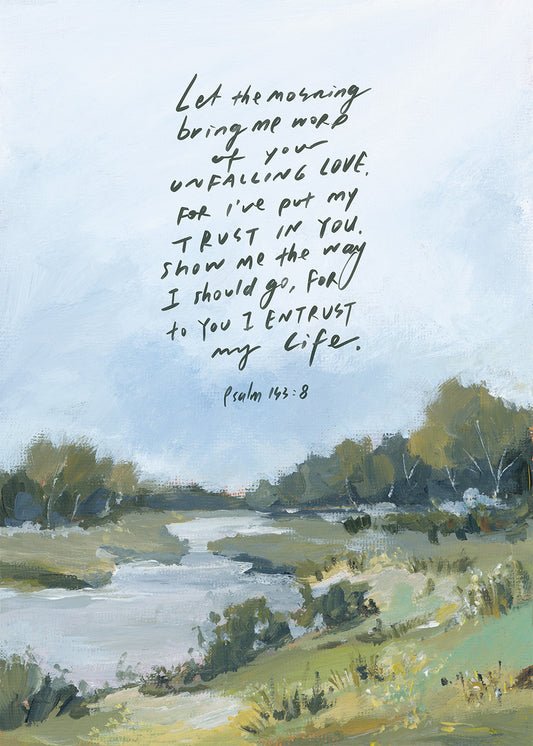 Let the morning
bring me word
of your
UNFALLING LOVE.
FOR i've put my
TRUST IN YOU.
show me the way
I should go, FOR
to YOU I ENTRUST
my life.
Psalm 143:8